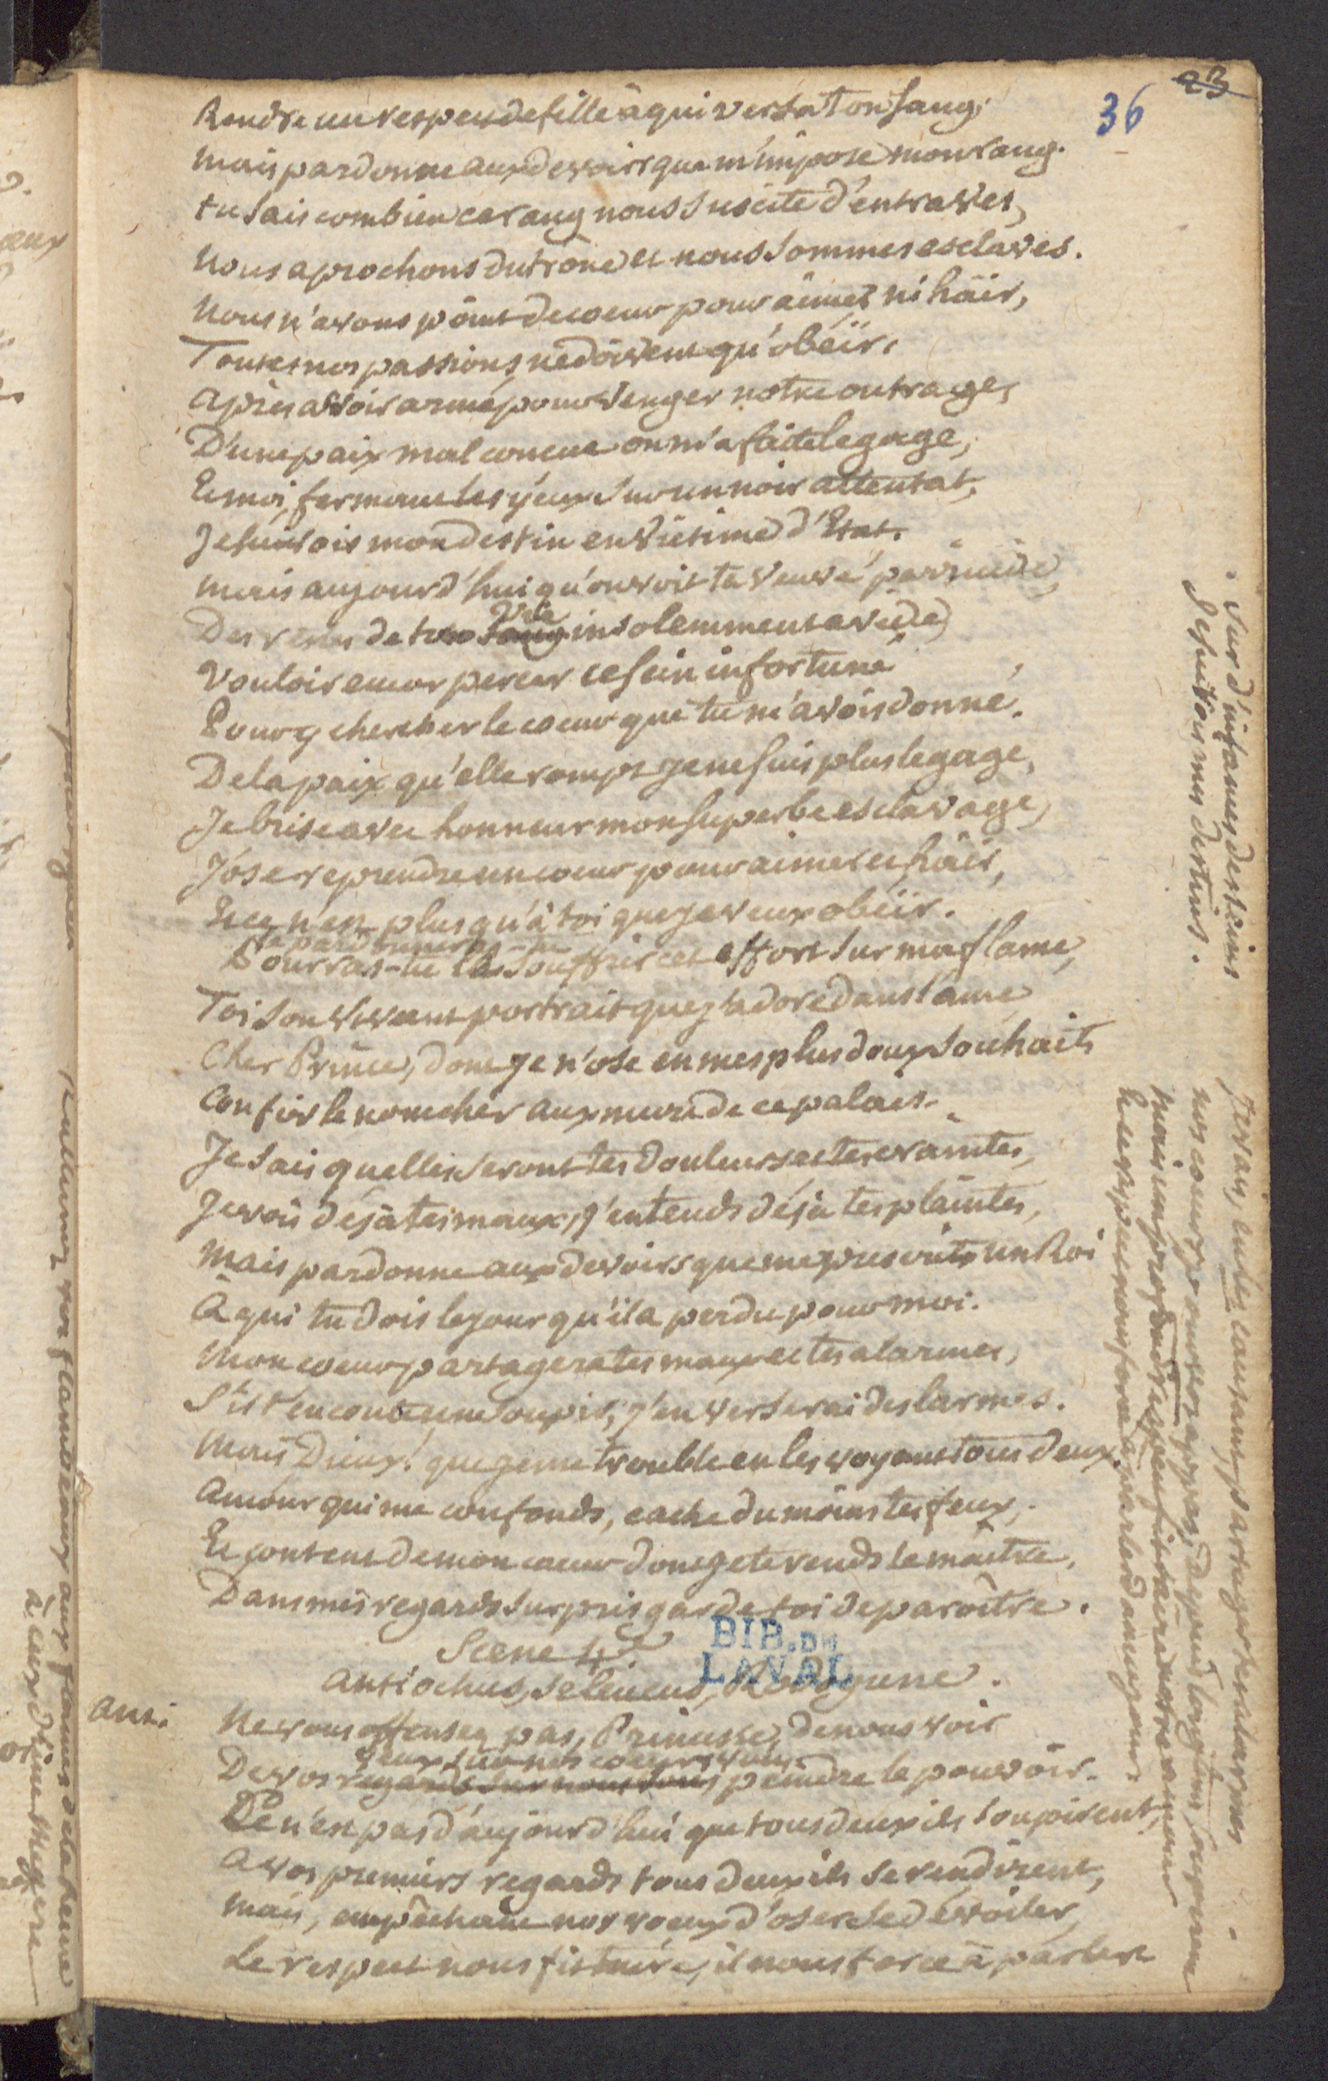 23
36
Rendre un respect de fille à qui versa ton sang;
mais pardonne aux devoirs que m'impose mon rang.
tu sais combien ce rang nous suscite d'entraves,
nous aprochons du trône et nous sommes esclaves.
nous n'avons point de coeur pour aimer ni haïr,
Toutes nos passions ne doivent qu'obéïr.
après avoir armé pour venger notre outrage,
D'une paix mal concue on m'a faite le gage,
Et moi, fermant les yeux sur un noir attentat,
Je suivois mon destin en victime d'Etat.
mais aujourd'hui qu'on voit ta veuve parricide,
Des restes de ta vie insolemment avide,
vouloir encor percer ce sein infortuné
Pour y chercher le coeur que tu m'avois donné.
De la paix qu'elle rompt je ne suis plus le gage,
Je brise avec honneur mon superbe esclavage,
J'ose reprendre un coeur pour aimer et haïr,
Et ce n'est plus qu'à toi que je veux obéïr.
Pourras-tu souffrir cet effort sur ma flame,
Toi son vivant portrait que j'adore dans l'ame
Cher Prince, dont je n'ose en mes plus doux souhaits
Confier le nom cher aux murs de ce palais.
Je sais quelles seront tes douleurs et tes craintes,
Je vois déjà tes maux, j'entends déjà tes plaintes,
mais pardonne aux devoirs que me prescrits un Roi
à qui tu dois le jour qu'il a perdu pour moi.
mon coeur partagera tes maux et tes alarmes,
S'il t'en coute un soupir, j'en verserai des larmes.
mais Dieux! que je me trouble en les voyant tous deux.
amour qui me confonds, cache du moins tes feux,
Et content de mon coeur dont je te rends le maître,
Dans mes regards surpris garde-toi de paroître.
Scene 4e
antiochus, seleucus, Rodogune.
BIB. DE
LAVAL
anti. Ne vous offensez pas, Princesse, de nous voir
yeux sur nos coeurs vous
De vos regards sur nous tous peindre le pouvoir.
Ce n'est pas d'aujourd'hui que tous deux ils soupirent,
a vos premiers regards tous deux ils se rendirent,
mais, empêchant nos voeux d'oser se dévoiler,
Le respect nous fit taire, il nous force à parler
sur d'infames desseins
Je suivois mes destins.